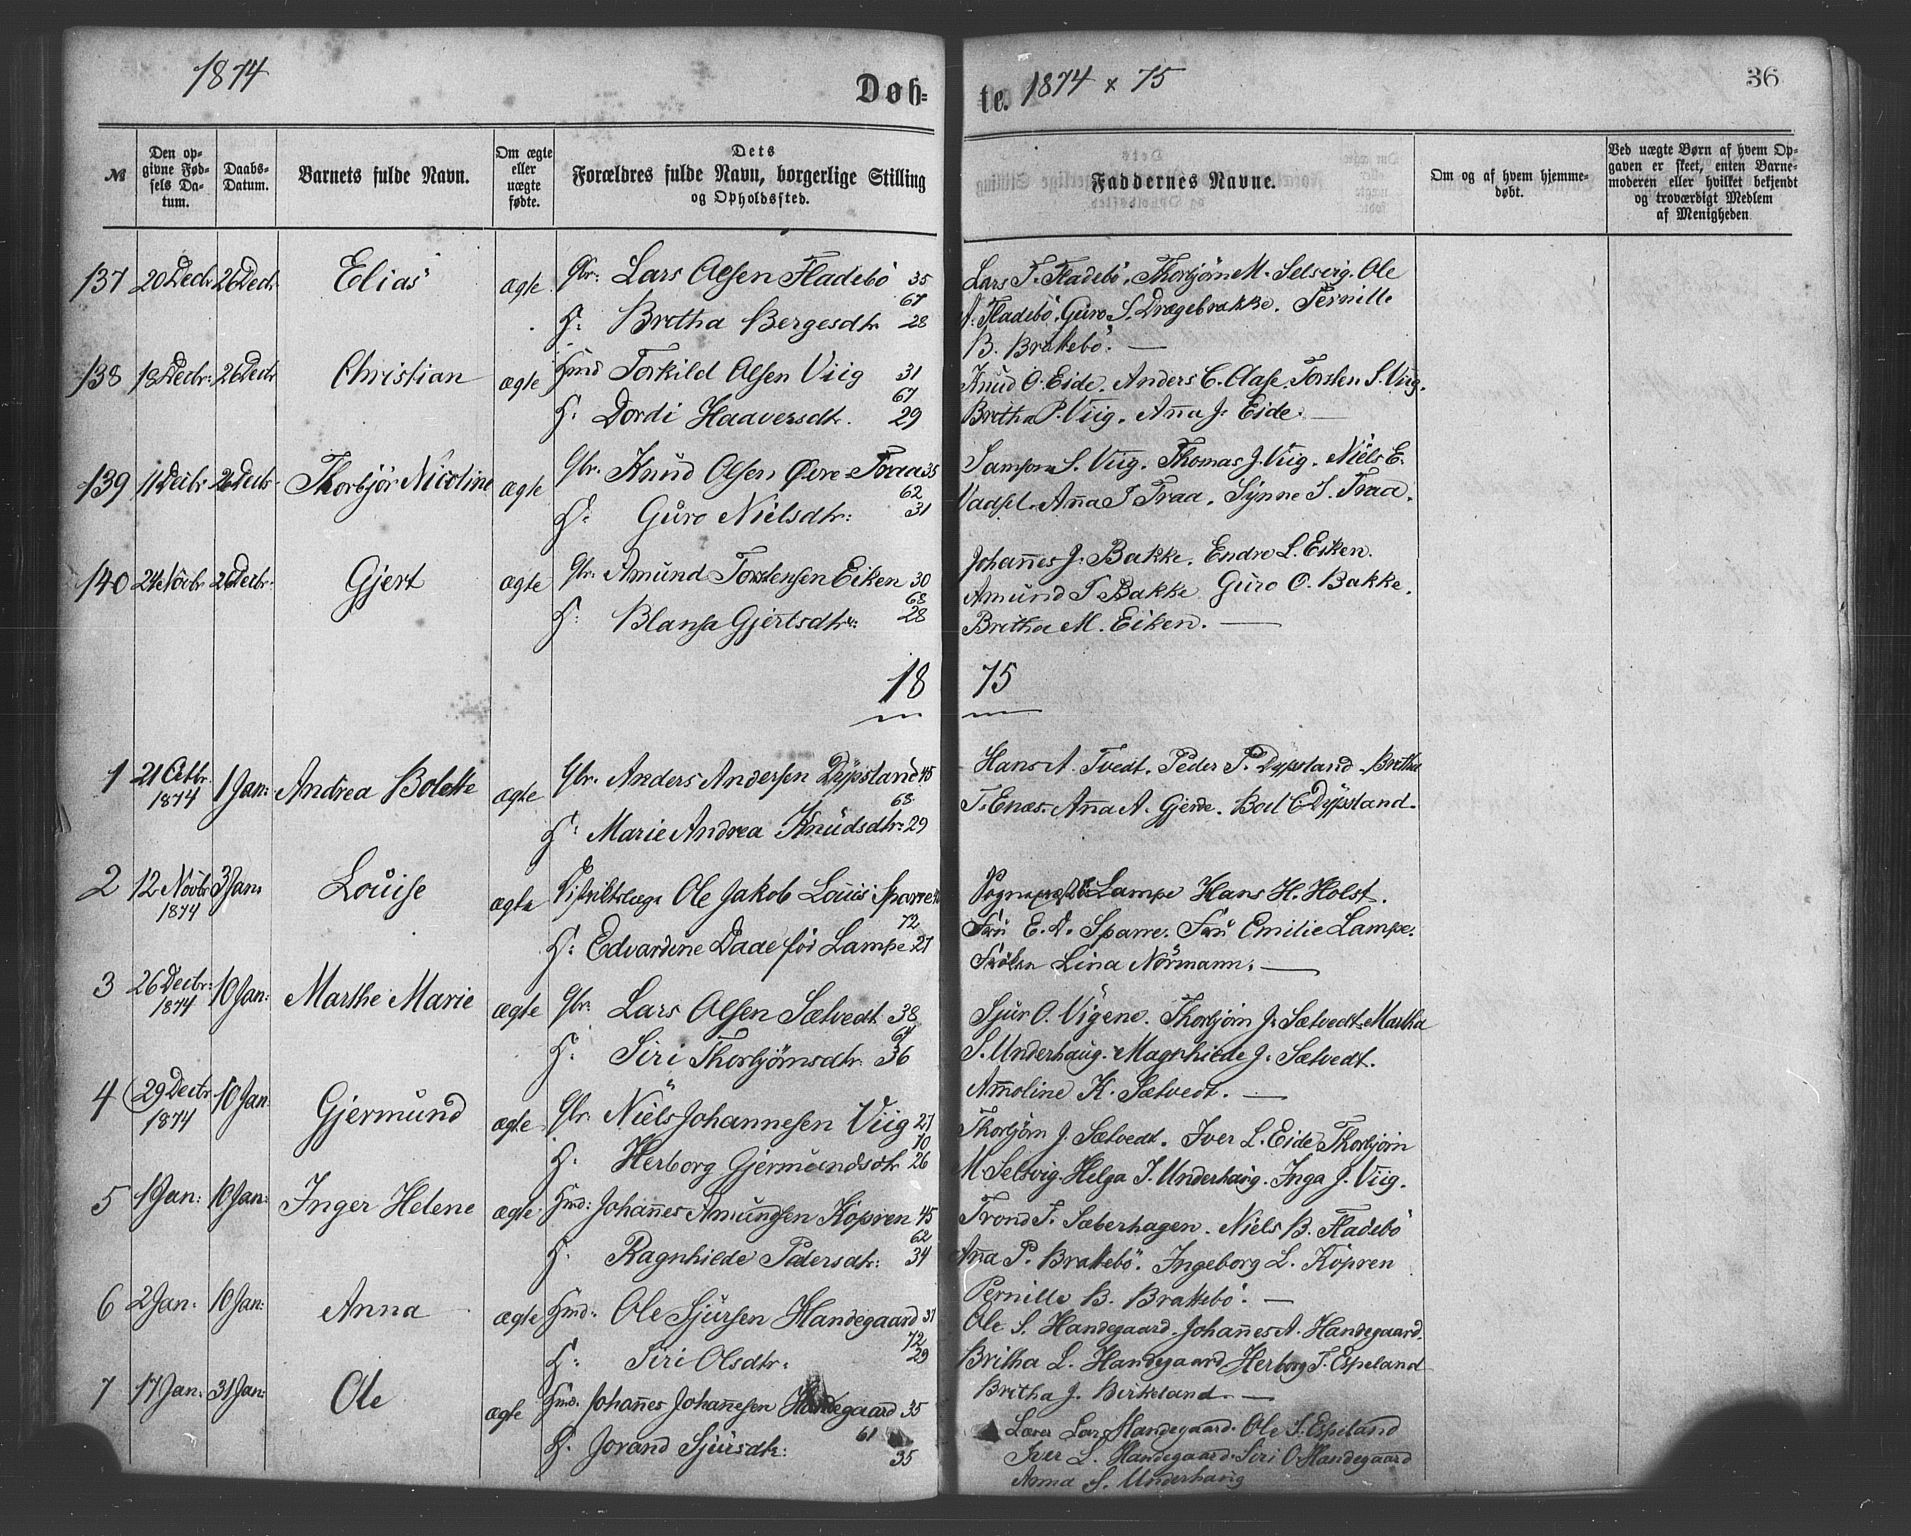 1874
Døb=
te. 1874 x 75
36
№
Den op-
givne Fød-
sels Da-
tum.
Daabs-
Datum.
Barnets fulde Navn.
Om ægte
eller
uægte
fødte.
Dets
Forældres fulde Navn, borgerlige Stilling
og Opholdssted.
Faddernes Navne.
Om og af hvem hjemme-
døbt.
Ved uægte Børn af hvem Op-
gaven er skeet, enten Barne-
moderen eller hvilket bekjendt
og troværdigt Medlem
af Menigheden
137 20 Decbr 26 Decbr Elias ægte Gbr: Lars Olsen Fladebö 35
67
H: Britha Bergesdtr 28
Lars T. Fladebö. Thorbjörn M. Selsvig. Ole
Fladebö. Guro S. Drægebrakke. Pernille
B. Brakebö. —
138 18 Decbr: 26 Decbr Christian ægte Hmd Torkild Olsen Viig 31
67
H: Dordi Haaversdtr. 29
Knud O. Eide. Anders C. Aase. Torsten S. Viig.
Britha P. Viig. Anna J. Eide. —
139 11 Decbr 26 Decbr Thorbjör Nicoline ægte Gbr. Knud Olsen Övre-Traa 35
62
H: Guro Nielsdtr: 31
Samson S. Viig. Thomas J. Viig. Niels E.
Vadsel. Anna T Traa. Synne I. Traa.
140 24 Novbr 26 Decbr. Gjert ægte Gbr. Amund Torstensen Eiken 30
68
H: Blansa Gjertsdtr: 28
Johannes J. Bakke. Endre L. Eiken.
Amund T Bakke Guro O. Bakke.
Britha M. Eiken. —
18 75
1 21 Octbr. 1874 1 Jan: Andrea Bolette ægte Gbr. Anders Andersen Dypsland 45
68
H: Marie Andrea Knudsdtr: 29
Hans A. Tvedt. Peder P. Dypsland. Britha
T. Enæs. Anna A. Gjerde. Boel C. Dypsland.
2 12 Novbr 1874 3 Jan: Louise ægte Distriktslæge Ole Jakob Louis Sparre
72
H: Edvardine Daae föd Lampe 27
Lampe Hans H. Holst.
Fru E. D. Sparre. Fru Emilie Lampe.
Fröken Lina Normann. —
3 26 Decbr: 1874 10 Jan: Marthe Marie ægte Gbr. Lars Olsen Sætvedt 38
H: Siri Thorbjörnsdtr. 36
Sjur O. Vigene. Thorbjörn J. Sætvedt. Martha
S. Underhaug. Magnhilde J. Sætvedt.
Ammoline K. Sætvedt. —
4 29 Decbr 1874 10 Jan Gjermund ægte Gbr. Niels Johannesen Viig 27
70
H: Herborg Gjermundsdtr 26
Thorbjörn J. Sætvedt. Iver L. Eide. Thorbjörn
M. Selsvig. Helga I. Underhaug. Inga J. Viig.
5 1 Jan: 10 Jan: Inger Helene ægte Hmd: Johannes Amundsen Kopren 45
62
H: Ragnhilde Pedersdtr: 34
Trond T. Sæberhagen. Niels B. Fladebö
Anna P. Brakebö. Ingeborg L. Kopren
Pernille B. Brakebö. —
6 2 Jan: 10 Jan: Anna ægte Hmd: Ole Sjursen Handegaard 31
72
H: Siri Olsdtr: 29
Ole S. Handegaard. Johannes A. Handegaard.
Britha L. Handegaard Herborg T. Espeland
Britha J. Birkeland. —
7 17 Jan: 31 Jan: Ole ægte Hmd. Johannes Johannesen Handegaard 35
61
H. Jorand Sjursdtr: 35
Lærer Lars Handegaard. Ole S. Espeland
Iver L. Handegaard. Siri O. Handegaard
Anna S. Underhaug